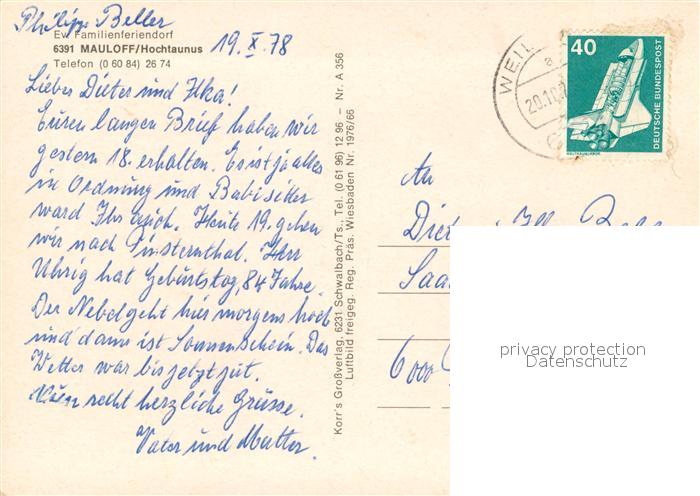 Philipp Beller
Ev. Familienferiendorf
6391 MAULOFF/Hochtaunus
Telefon (0 60 84) 26 74
19. X. 78
Lieber Dieter und Ilka!
Euren langen Brief haben wir
gestern 18. erhalten. Es ist ja alles
in Ordnung und Babisitter
ward Ihr auch. Heute 19. gehen
wir nach Finsternthal. Herr
Uhrig hat Geburtstag, 84 Jahre.
Der Nebel geht hier morgens hoch
und dann ist Sonnenschein. Das
Wetter war bis jetzt gut.
Nun recht herzliche Grüsse.
Vater und Mutter.
Korr's Großverlag, 6231 Schwalbach/Ts., Tel. (0 61 96) 12 96 – Nr. A 356
Luftbild freigeg. Reg. Präs. Wiesbaden Nr. 1976/66
WEIL
a
20.10.
40
DEUTSCHE BUNDESPOST
WELTRAUMLABOR
An
Saa
6000
privacy protection
Datenschutz